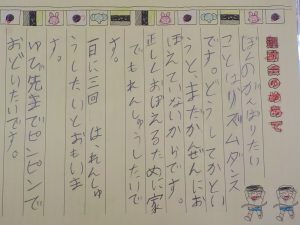 運動会のめあて
ぼくのがんばりたい
ことはリズムダンス
です。どうしてかとい
うと、まだかぜんにお
ぼえていないからです。
正しくおぼえるために家
でもれんしゅうしたいで
す。
一日に三回は、れんしゅ
うしたいとおもいま
す。
ゆび先までピンピンで
おどりたいです。